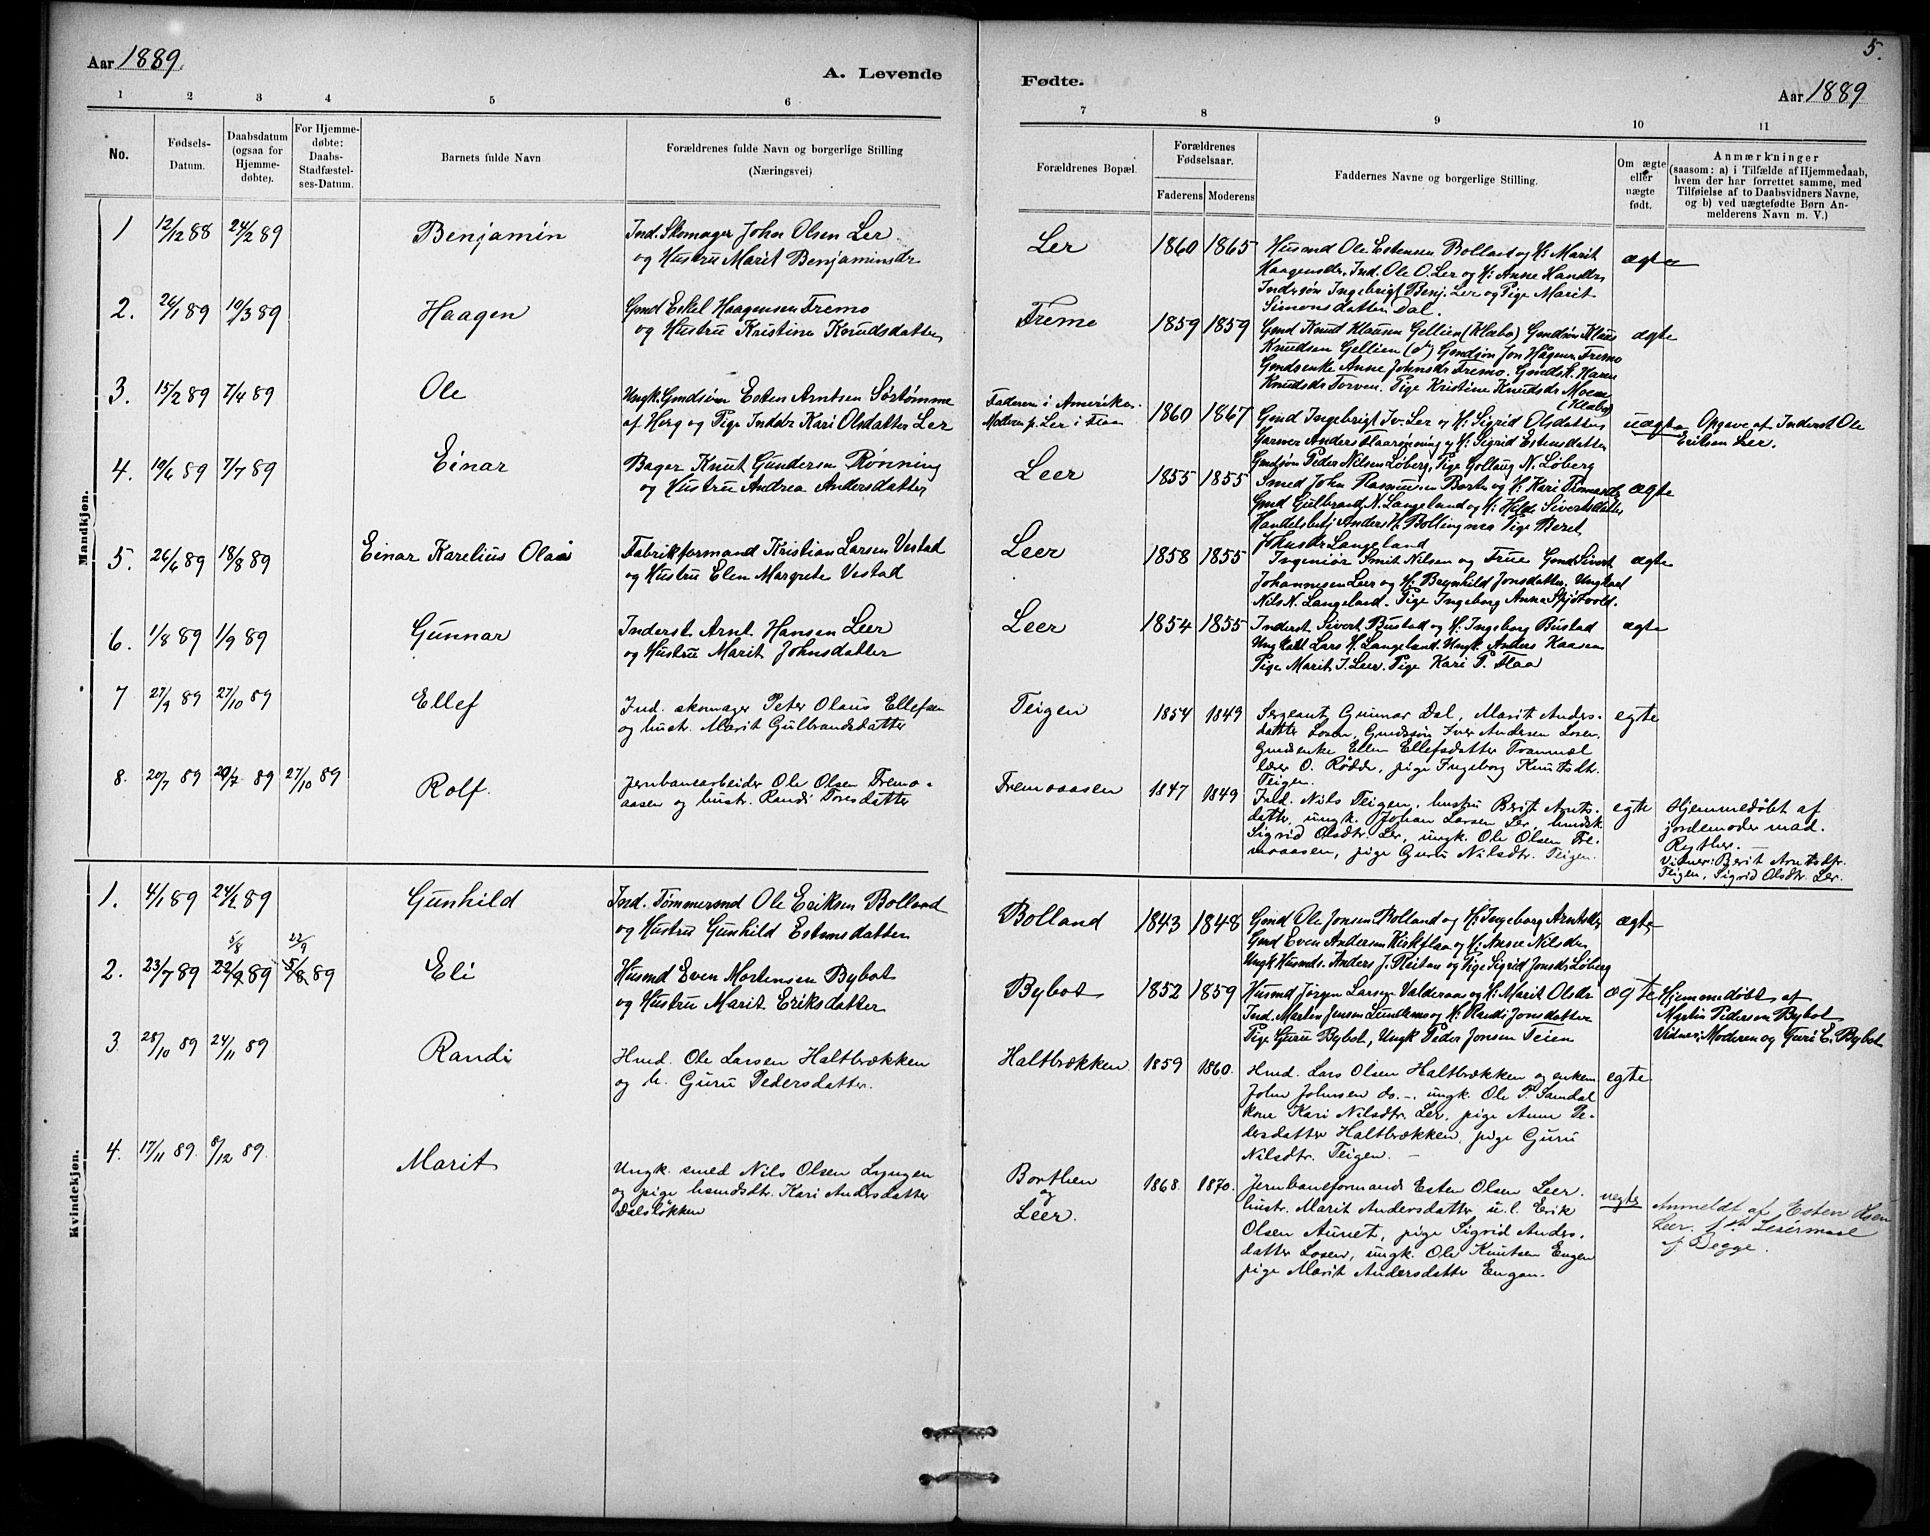 Aar 1889.
A. Levende
Fødte.
Aar 1889
5.
1 2 3 4 5 6 7 8 9 10 11
No.
Fødsels-
Datum.
Daabsdatum
(ogsaa for
Hjemme-
døbte).
For Hjemme-
døbte:
Daabs-
Stadfæstel-
ses-Datum.
Barnets fulde Navn
Forældrenes fulde Navn og borgerlige Stilling
(Næringsvei)
Forældrenes Bopæl.
Forældrenes
Fødselsaar.
Faderens Moderens
Faddernes Navne og borgerlige Stilling.
Om ægte
eller
uægte
født.
Anmærkninger
(saasom: a) i Tilfælde af Hjemmedaab,
hvem der har forrettet samme, med
Tilføielse af to Daabsvidners Navne,
og b) ved uægtefødte Børn An-
melderens Navn m. V.)
Mandkjøn.
1 12/12 88 24/2 89 Benjamin
Ind. Skomager John Olsen Ler
og Hustru Marit Benjaminsdr
Ler 1860 1865
Husmd Ole Estensen Bolland og H: Marit
Haagensdr, Ind. Ole O. Ler og H: Anne Hansdr
Inderssøn Ingebrigt Benj. Ler og Pige Marit
Simonsdatter Dal.
ægte
2. 26/1 89 10/3 89 Haagen
Gmd Eskil Haagensen Fremo
og Hustru Kristine Knudsdatter
Fremo 1859 1859
Gmd Knut Klausen Gellien (Klæbo) Gmdsøn Klaus
Knudsen Gellien (do) Gmdsøn Jon Hågens. Fremo
Gmdsenke Anne Johnsdr Fremo. Gmdsk. Karen
Knudsdr Torven. Pige Kristine Knudsdr Moen
(Klæbo)
ægte
3. 15/2 89 7/4 89 Ole
Ungk. Gmdsøn Esten Arntsen Sørtømme
af Horg og Pige Inddr Kari Olsdatter Ler
Faderen i Amerika.
Moderen p. Ler i Flaa
1860 1867
Gmd Ingebrigt Iv. Ler og H. Sigrid Olsdatter
Garver Anders Haarønning og H: Sigrid Estensdatter
Gmdsøn Peder Nilsen Løberg, Pige Gollaug N. Løberg
uægte
Opgave af Inderst Ole
Eriksen Ler.
4. 19/6 89 7/7 89 Einar
Bager Knut Gundersen Rønning
og Hustru Andrea Andersdatter
Leer 1855 1855
Smed John Rasmussen Borten og H. Kari Thomasdr
Gmd Gulbrand N. Langeland og H: Hilde Sivertsdatter
Handelsbetj Anders H. Bolling Pige Beret
Johnsdr Langeland
ægte
5. 26/6 89 18/8 89 Einar Karelius Olai
Fabrikformand Kristian Larsen Vestad
og Hustru Elen Margrete Vestad
Leer 1858 1855
Ingeniør Smit Nilsen og Frue Gmd Sivert
Johannesen Leer og H. Brynhild Jonsdatter, Ungkarl
Nils N. Langeland. Pige Ingeborg Anna Skjøtvold.
ægte
6. 1/8 89 1/9 89 Gunnar
Inderst Arnt Hansen Leer
og Hustru Marit Johnsdatter
Leer 1854 1855
Inderst Sivert Bustad og H. Ingeborg Bustad
Ungkarl Lars H. Langeland. Ungk. Anders Kaasen
Pige Marit I. Leer. Pige Kari P. Flaa
ægte
7 27/9 89 27/10 89 Ellef
Ind. skomager Peter Olaus Ellefsen
og hustr. Marit Gulbrandsdatter
Teigen 1854 1849
Sergeant Gunnar Dal, Marit Anders-
datter Losen, Gmdssøn Iver Andersen Losen
Gmdsenke Ellen Ellefsdatter Tranmæl
lærer O. Rødde, pige Ingeborg Knutsdtr.
Teigen.
egte
8. 20/7 89 20/7 89 27/10 89 Rolf.
Jernbanearbeider Ole Olsen Fremo-
aasen og hustr. Randi Toresdatter
Fremoaasen 1847 1849
Ind. Nils Teigen, hustru Berit Arnts-
datter, ungk. Johan Larsen Ler, husdsk.
Sigrid Olsdtr. Ler, ungk. Ole Olsen Fre-
moaasen, pige Guru Nilsdtr. Teigen.
egte
Hjemmedøbt af
jordemoder mad.
Ryther. —
Vidner: Berit Arntsdtr.
Teigen, Sigrid Olsdtr. Ler.
Kvindekjøn.
1. 4/1 89 24/2 89 Gunhild
Ind. Tømmermd Ole Eriksen Bolland
og Hustru Gunhild Estensdatter
Bolland 1843 1848
Gmd Ole Jonsen Bolland og H. Ingeborg Arntsdr
Gmd Even Andersen Kirkflaa og H. Anne Nilsdr
Ungk Husmds. Anders J. Reitan og Pige Sigrid Jonsdr Løberg
ægte
5/8 22/9
2. 23/7 89 22/9 89 5/8 89 Eli
Husmd Even Mortensen Bybot
og Hustru Marit Eriksdatter
Bybot 1852 1859
Husmd Jørgen Larsen Valderaas og H: Marit Olsdr
Ind. Martin Jensen Lundemo og H: Randi Jonsdatter
Pige Guru Bybot, Ungk Peder Jonsen Teien
ægte
Hjemmedøbt af
Martin Pedersen Bybot
Vidner: Moderen og Guri E. Bybot
3 28/10 89 24/11 89 Randi
Hmd. Ole Larsen Haltbrækken
og h. Guru Pedersdatter.
Haltbrækken 1859 1860.
Hmd. Lars Olsen Haltbrækken og enkem.
John Johnsen do. -, ungk. Ole P. Samdal
kone Kari Nilsdtr. Ler, pige Anne Pe-
dersdatter Haltbrækken, pige Guru
Nilsdtr. Teigen. —
egte
4. 17/11 89. 8/12 89. Marit
Ungk. smed Nils Olsen Lyngen
og pige hmdsdtr. Kari Andersdatter
Dalsløkken
Borthen
og
Leer.
1868. 1870.
Jernbaneformand Esten Olsen Leer.
hustr. Marit Andersdatter u. l. Erik
Olsen Aunet, pige Sigrid Anders-
datter Losen, ungk. Ole Knutsen Engen
pige Marit Andersdatter Engan.
uegte
Anmeldt af Esten Olsen
Leer. 1ste Leiermaal
af Begge.